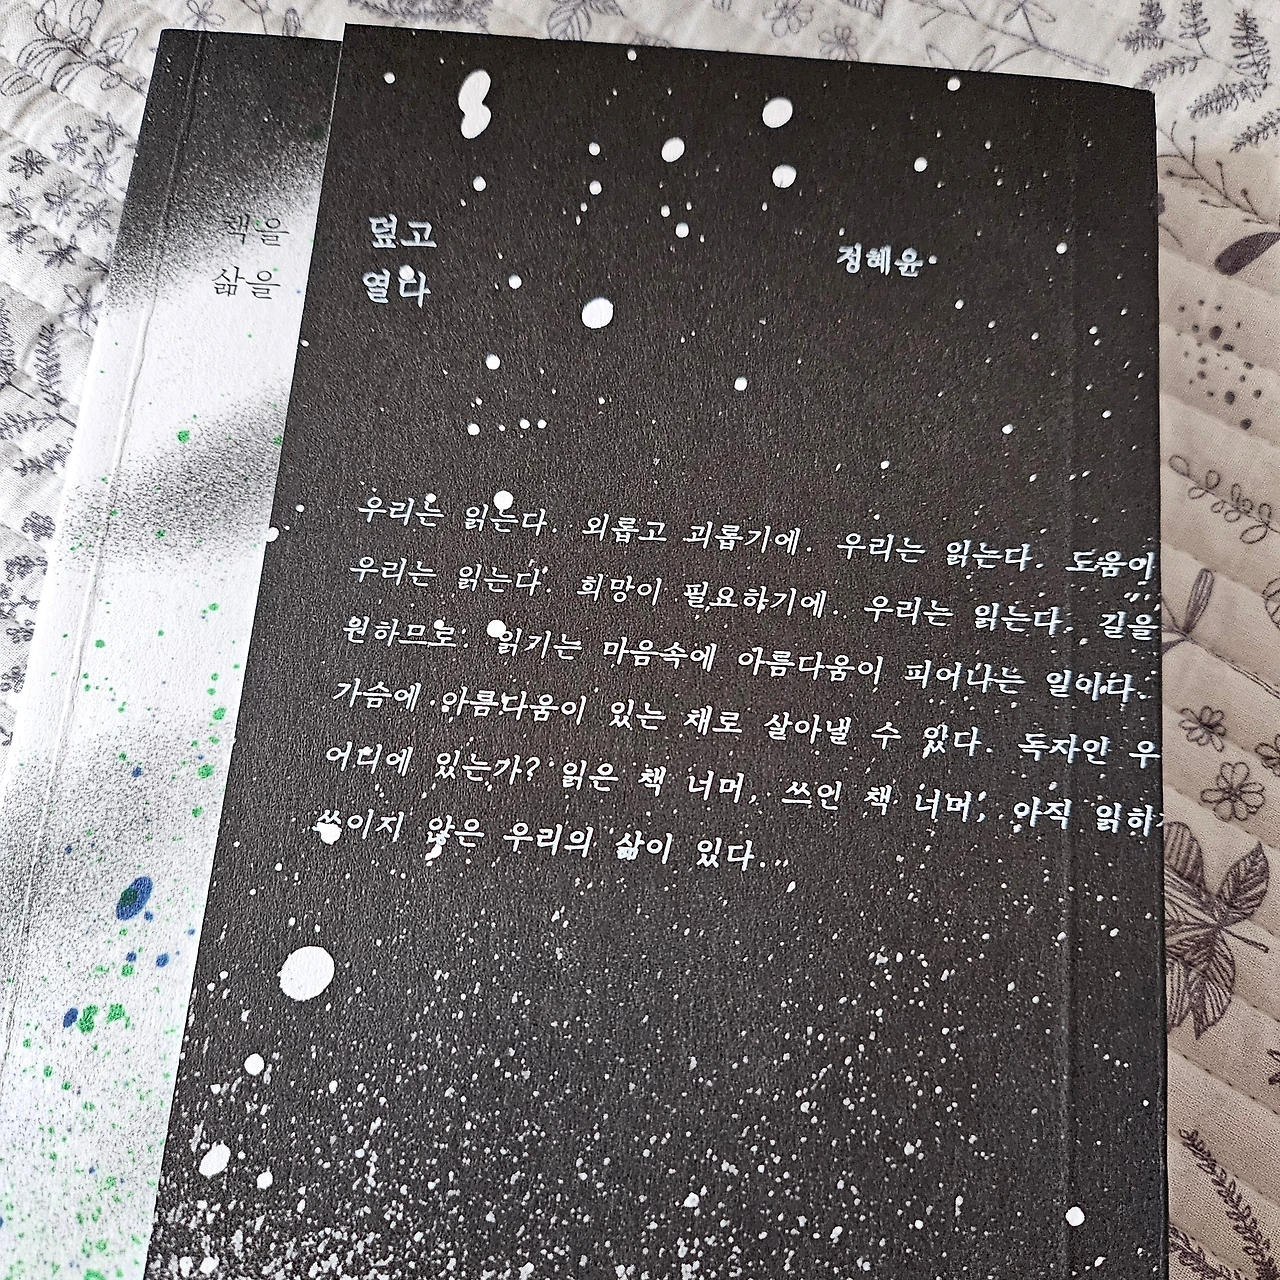 책을 덮고
삶을 열다
정혜윤
우리는 읽는다. 외롭고 괴롭기에. 우리는 읽는다. 도움이
우리는 읽는다. 희망이 필요하기에. 우리는 읽는다. 길을
원하므로. 읽기는 마음속에 아름다움이 피어나는 일이다.
가슴에 아름다움이 있는 채로 살아낼 수 있다. 독자인 우
어디에 있는가? 읽은 책 너머, 쓰인 책 너머, 아직 읽히
쓰이지 않은 우리의 삶이 있다.